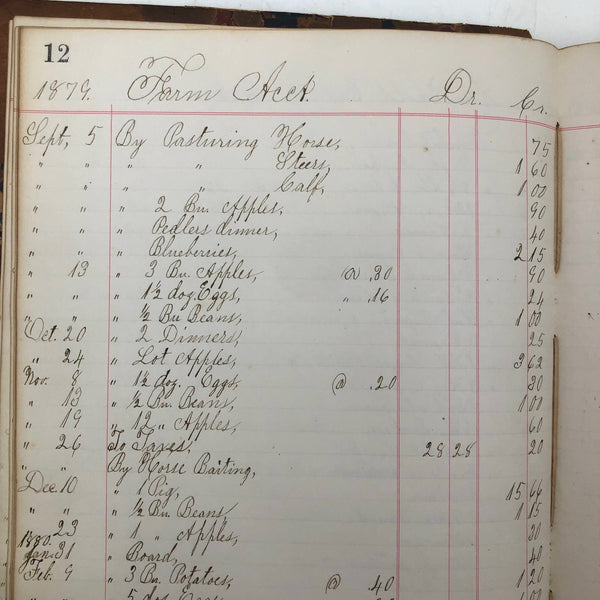 12
1879. Farm Acct. Dr. Cr.
Sept, 5 By Pasturing Horse, 75
" " " " Steers, 1 60
" " " " Calf, 1 00
" " " 2 Bu. Apples, 90
" " " Pedlers dinner, 40
" " " Blueberries, 2 15
" 13 " 3 Bu. Apples, @ .30 90
" " " 1½ doz. Eggs, " .16 24
" " " ½ Bu Beans, 1 00
Oct. 20 " 2 Dinners, 25
" 24 " Lot Apples, 3 62
Nov. 8 " 1½ doz. Eggs, @ .20 30
" 13 " ½ Bu. Beans, 1 00
" 19 " 12 " Apples, 60
" 26 To Taxes, 28 28
" " By Horse Baiting, 20
Dec. 10 " 1 Pig,
" " " ½ Bu. Beans, 1 15
" 23 " 1 " Apples, 30
1880.
Jan. 31 " Board, 40
Feb. 9 " 3 Bu. Potatoes, @ .40 1 20
5 doz